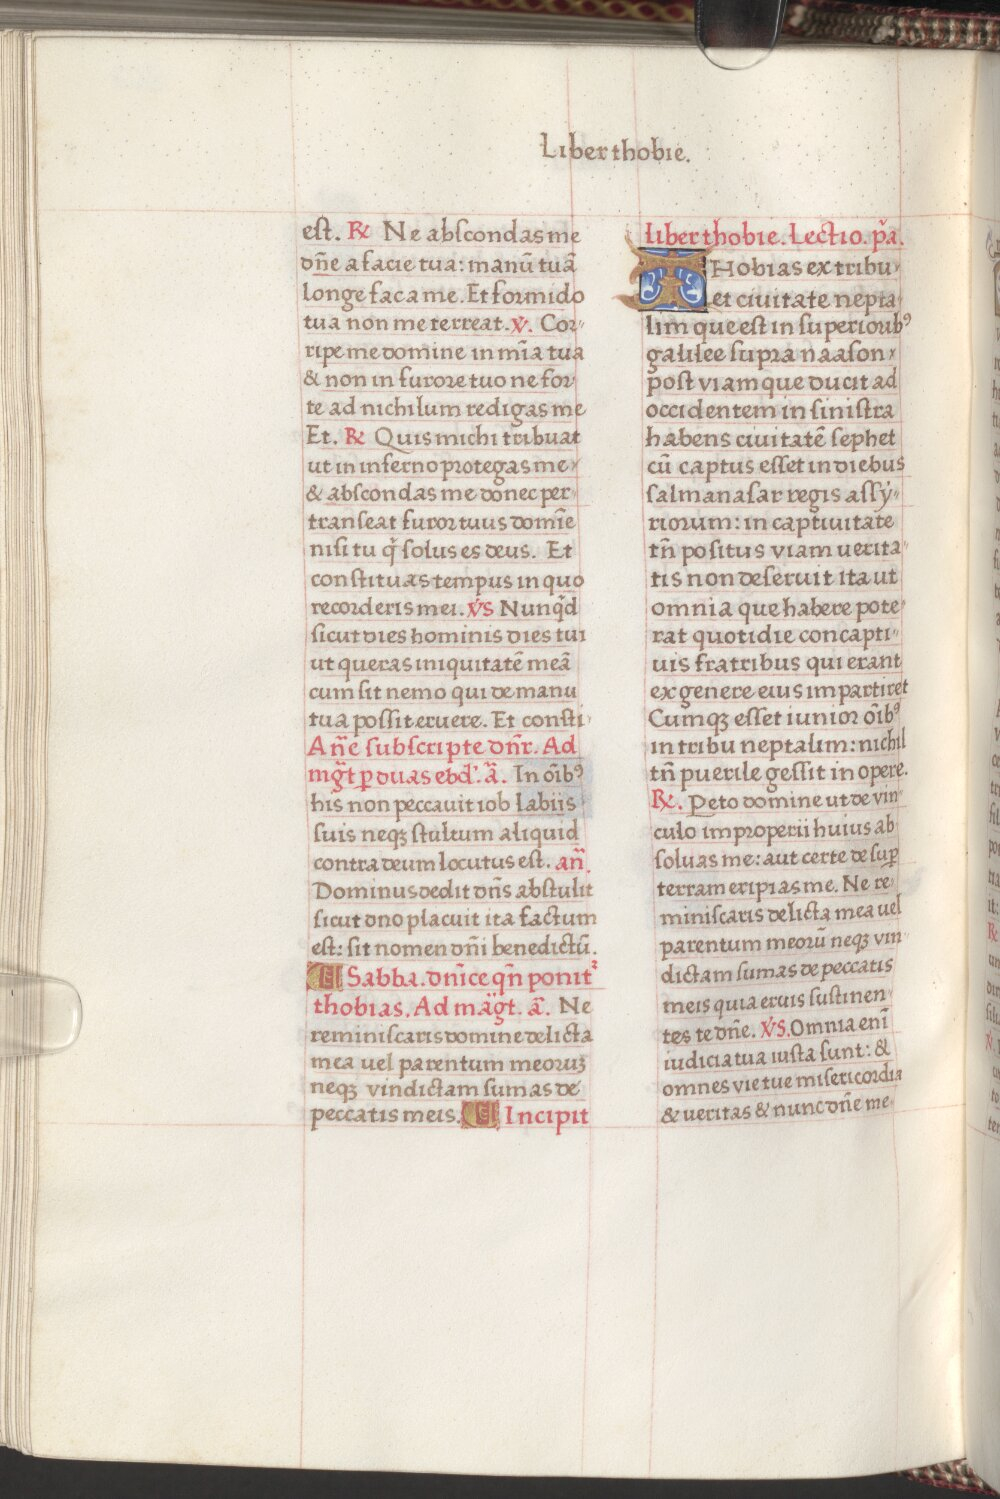 Liber thobie.
est. ℟ Ne abscondas me
dn̄e a facie tua: manū tuā
longe fac a me. Et formido
tua non me terreat. ℣. Cor-
ripe me domine in mīa tua
& non in furore tuo ne for
te ad nichilum redigas me
Et. ℟ Quis michi tribuat
ut in inferno protegas me
& abscondas me donec per
transeat furor tuus domīe
nisi tu q̄ solus es deus. Et
constituas tempus in quo
recorderis mei. ℣S Nunqd
sicut dies hominis dies tui
ut queras iniquitatē meā
cum sit nemo qui de manu
tua possit eruere. Et consti
An̄e subscripte dn̄r. Ad
mg̃t p duas ebd'. ā. In oībꝰ
his non peccavit iob labijs
suis neqꝫ stultum aliquid
contra deum locutus est. an̄.
Dominus dedit dn̄s abstulit
sicut dno placuit ita factum
est: sit nomen dn̄i benedictū.
Sabba. dn̄ice qn̄ ponit᷑
thobias. Ad mãgt. ā. Ne
reminiscaris domine delicta
mea vel parentum meoruꝫ
neqꝫ vindictam sumas de
peccatis meis. Incipit
liber thobie. Lectio. p̄a.
THobias ex tribu
et civitate nepta
lim que est in superioribꝰ
galilee supra naason
post viam que ducit ad
occidentem in sinistra
habens civitatē sephet
cū captus esset in diebus
salmanasar regis assy-
riorum: in captivitate
tn̄ positus viam verita-
tis non deseruit ita ut
omnia que habere pote
rat quotidie concapti-
vis fratribus qui erant
ex genere eius impartiret
Cumqꝫ esset iunior oībꝰ
in tribu neptalim: nichil
tn̄ puerile gessit in opere.
℟. Peto domine ut de vin
culo improperii huius ab
solvas me: aut certe de sup
terram eripias me. Ne re
miniscaris delicta mea vel
parentum meorū neqꝫ vin
dictam sumas de peccatis
meis quia eruis sustinen
tes te dn̄e. ℣S. Omnia enī
iudicia tua iusta sunt: &
omnes vie tue misericordia
& veritas & nunc dn̄e me-